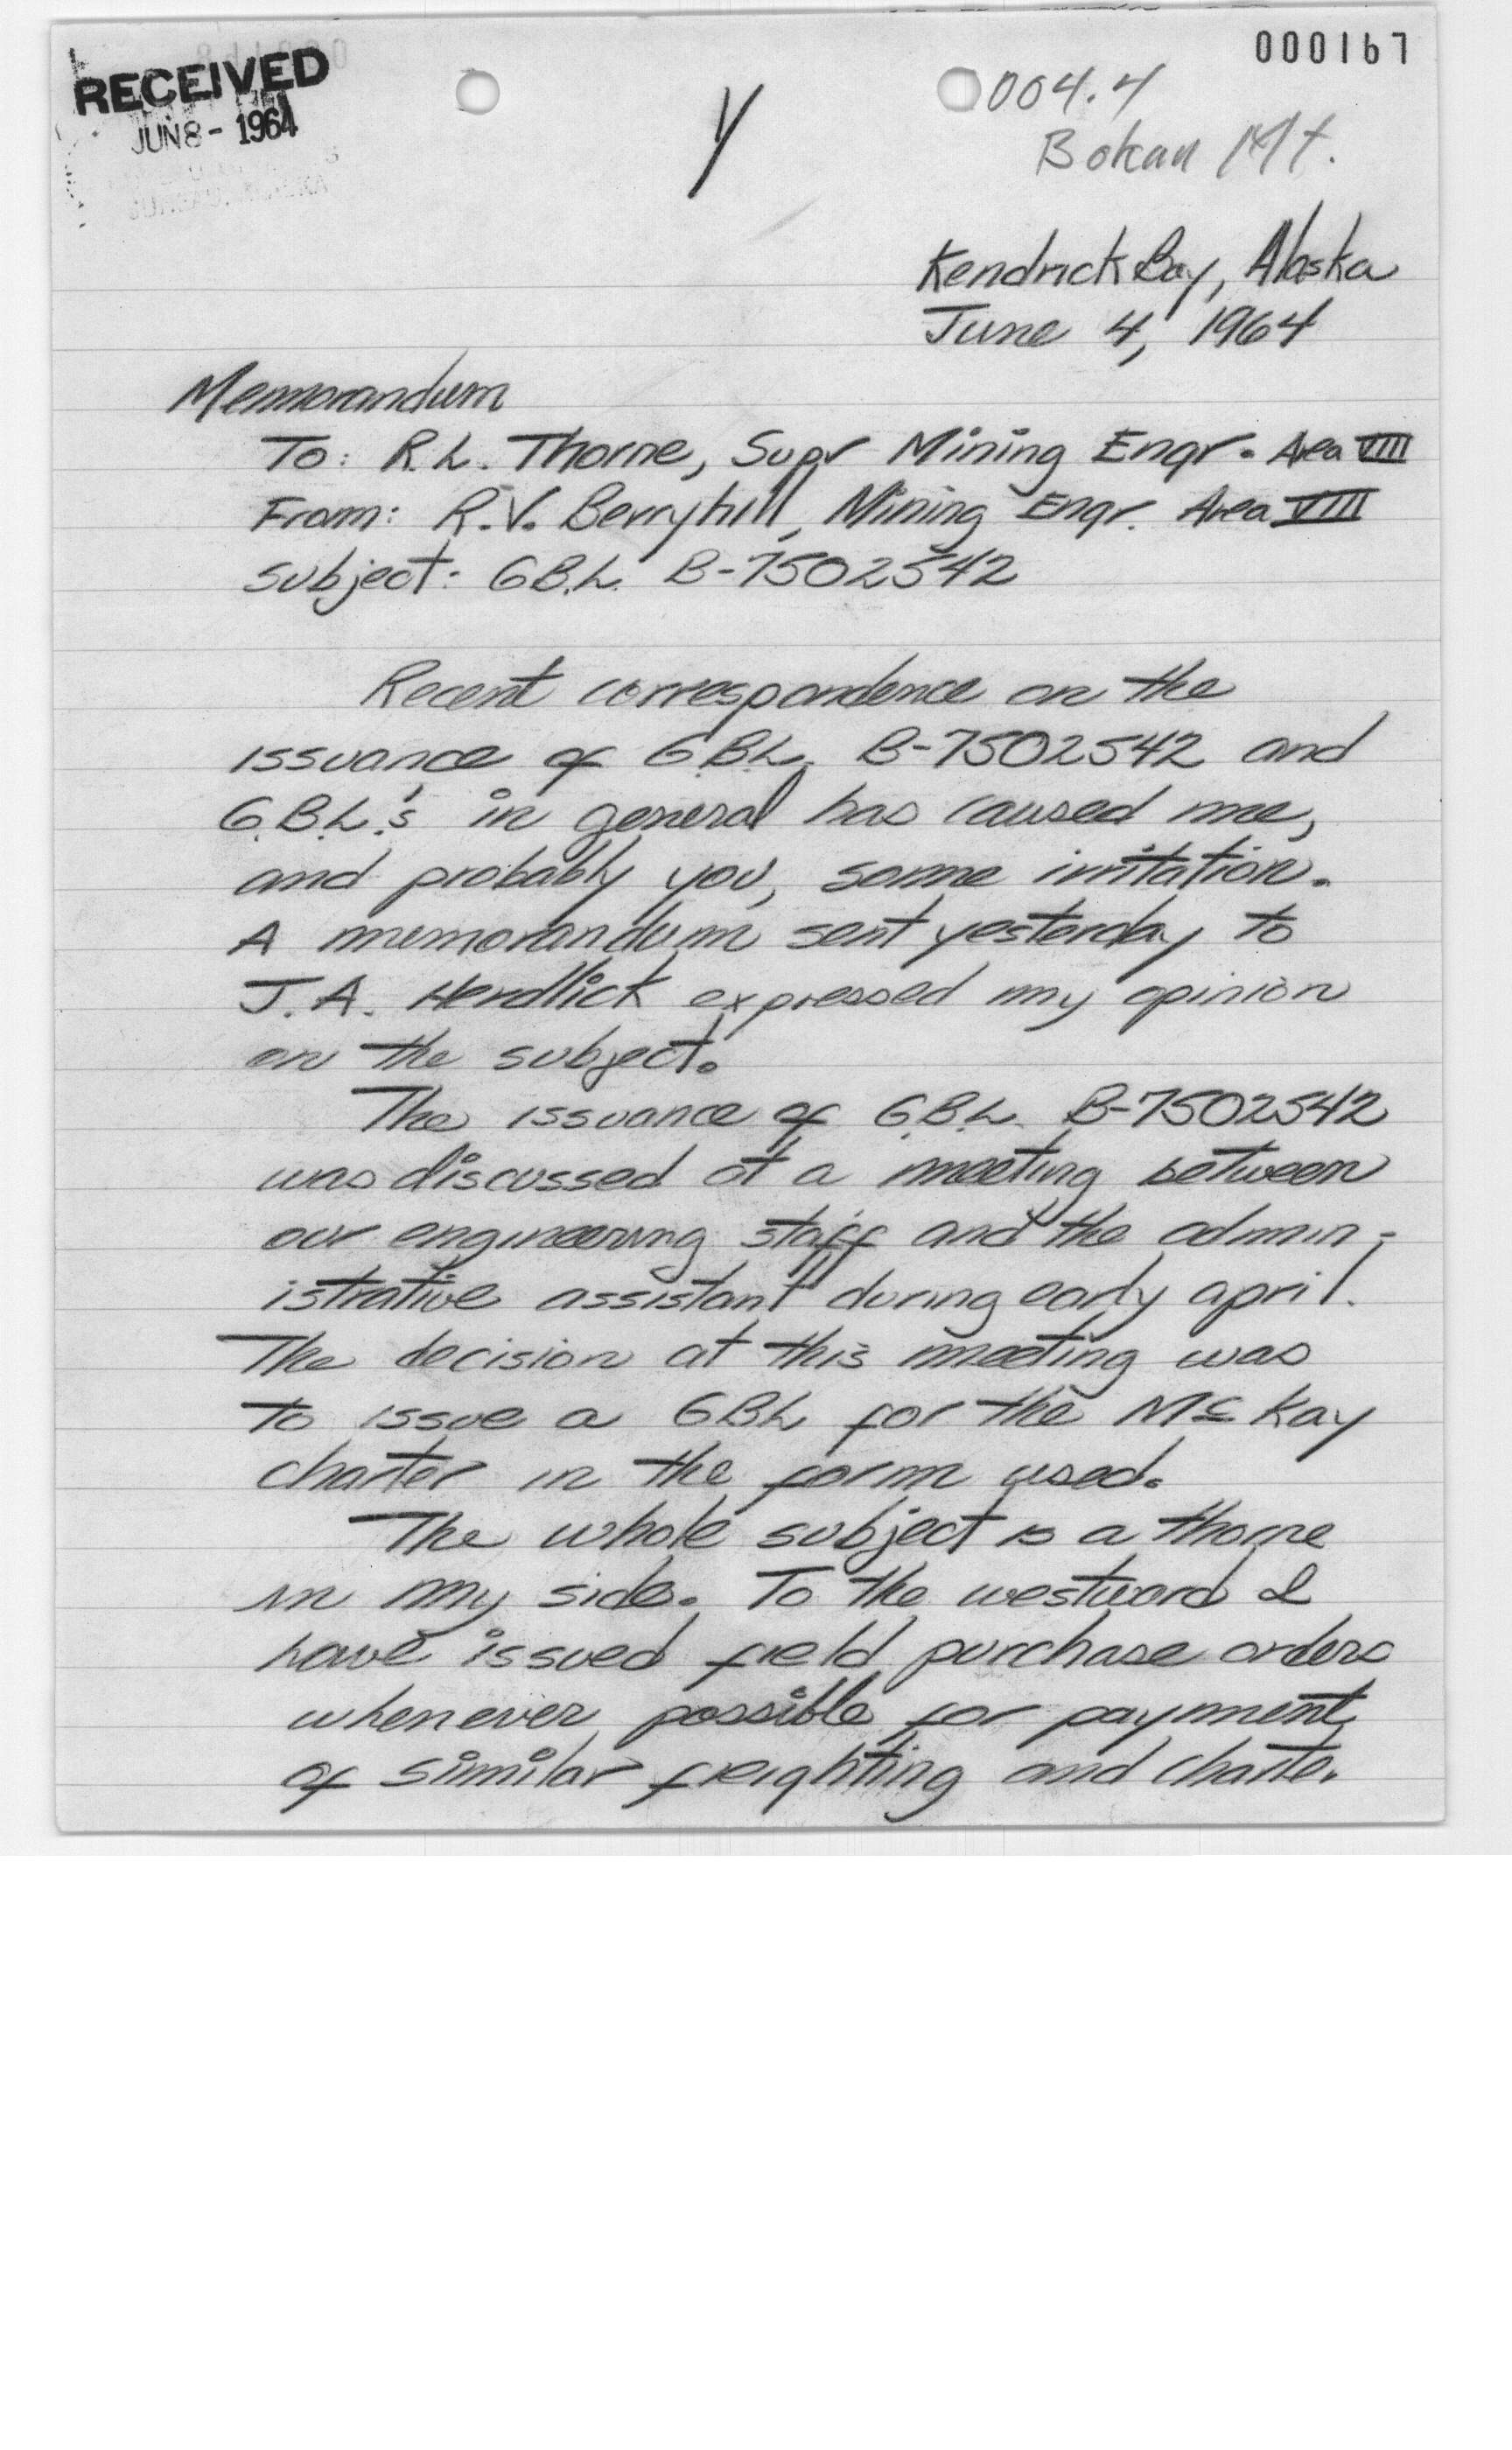 000167
RECEIVED
JUN 8 - 1964
004.4
Bokan Mt.
Kendrick Bay, Alaska
June 4, 1964
Memorandum
To: R.L. Thorne, Supr Mining Engr. Area VIII
From: R.V. Berryhill, Mining Engr. Area VIII
Subject: G.B.L. B-7502542
Recent correspondence on the
issuance of G.B.L. B-7502542 and
G.B.L.'s in general has caused me,
and probably you, some irritation.
A memorandum sent yesterday to
J.A. Herdlick expressed my opinion
on the subject.
The issuance of G.B.L. B-7502542
was discussed at a meeting between
our engineering staff and the admin-
istrative assistant during early april.
The decision at this meeting was
to issue a GBL for the McKay
charter in the form used.
The whole subject is a thorne
in my side. To the westward I
have issued field purchase orders
whenever possible for payment
of similar freighting and charter